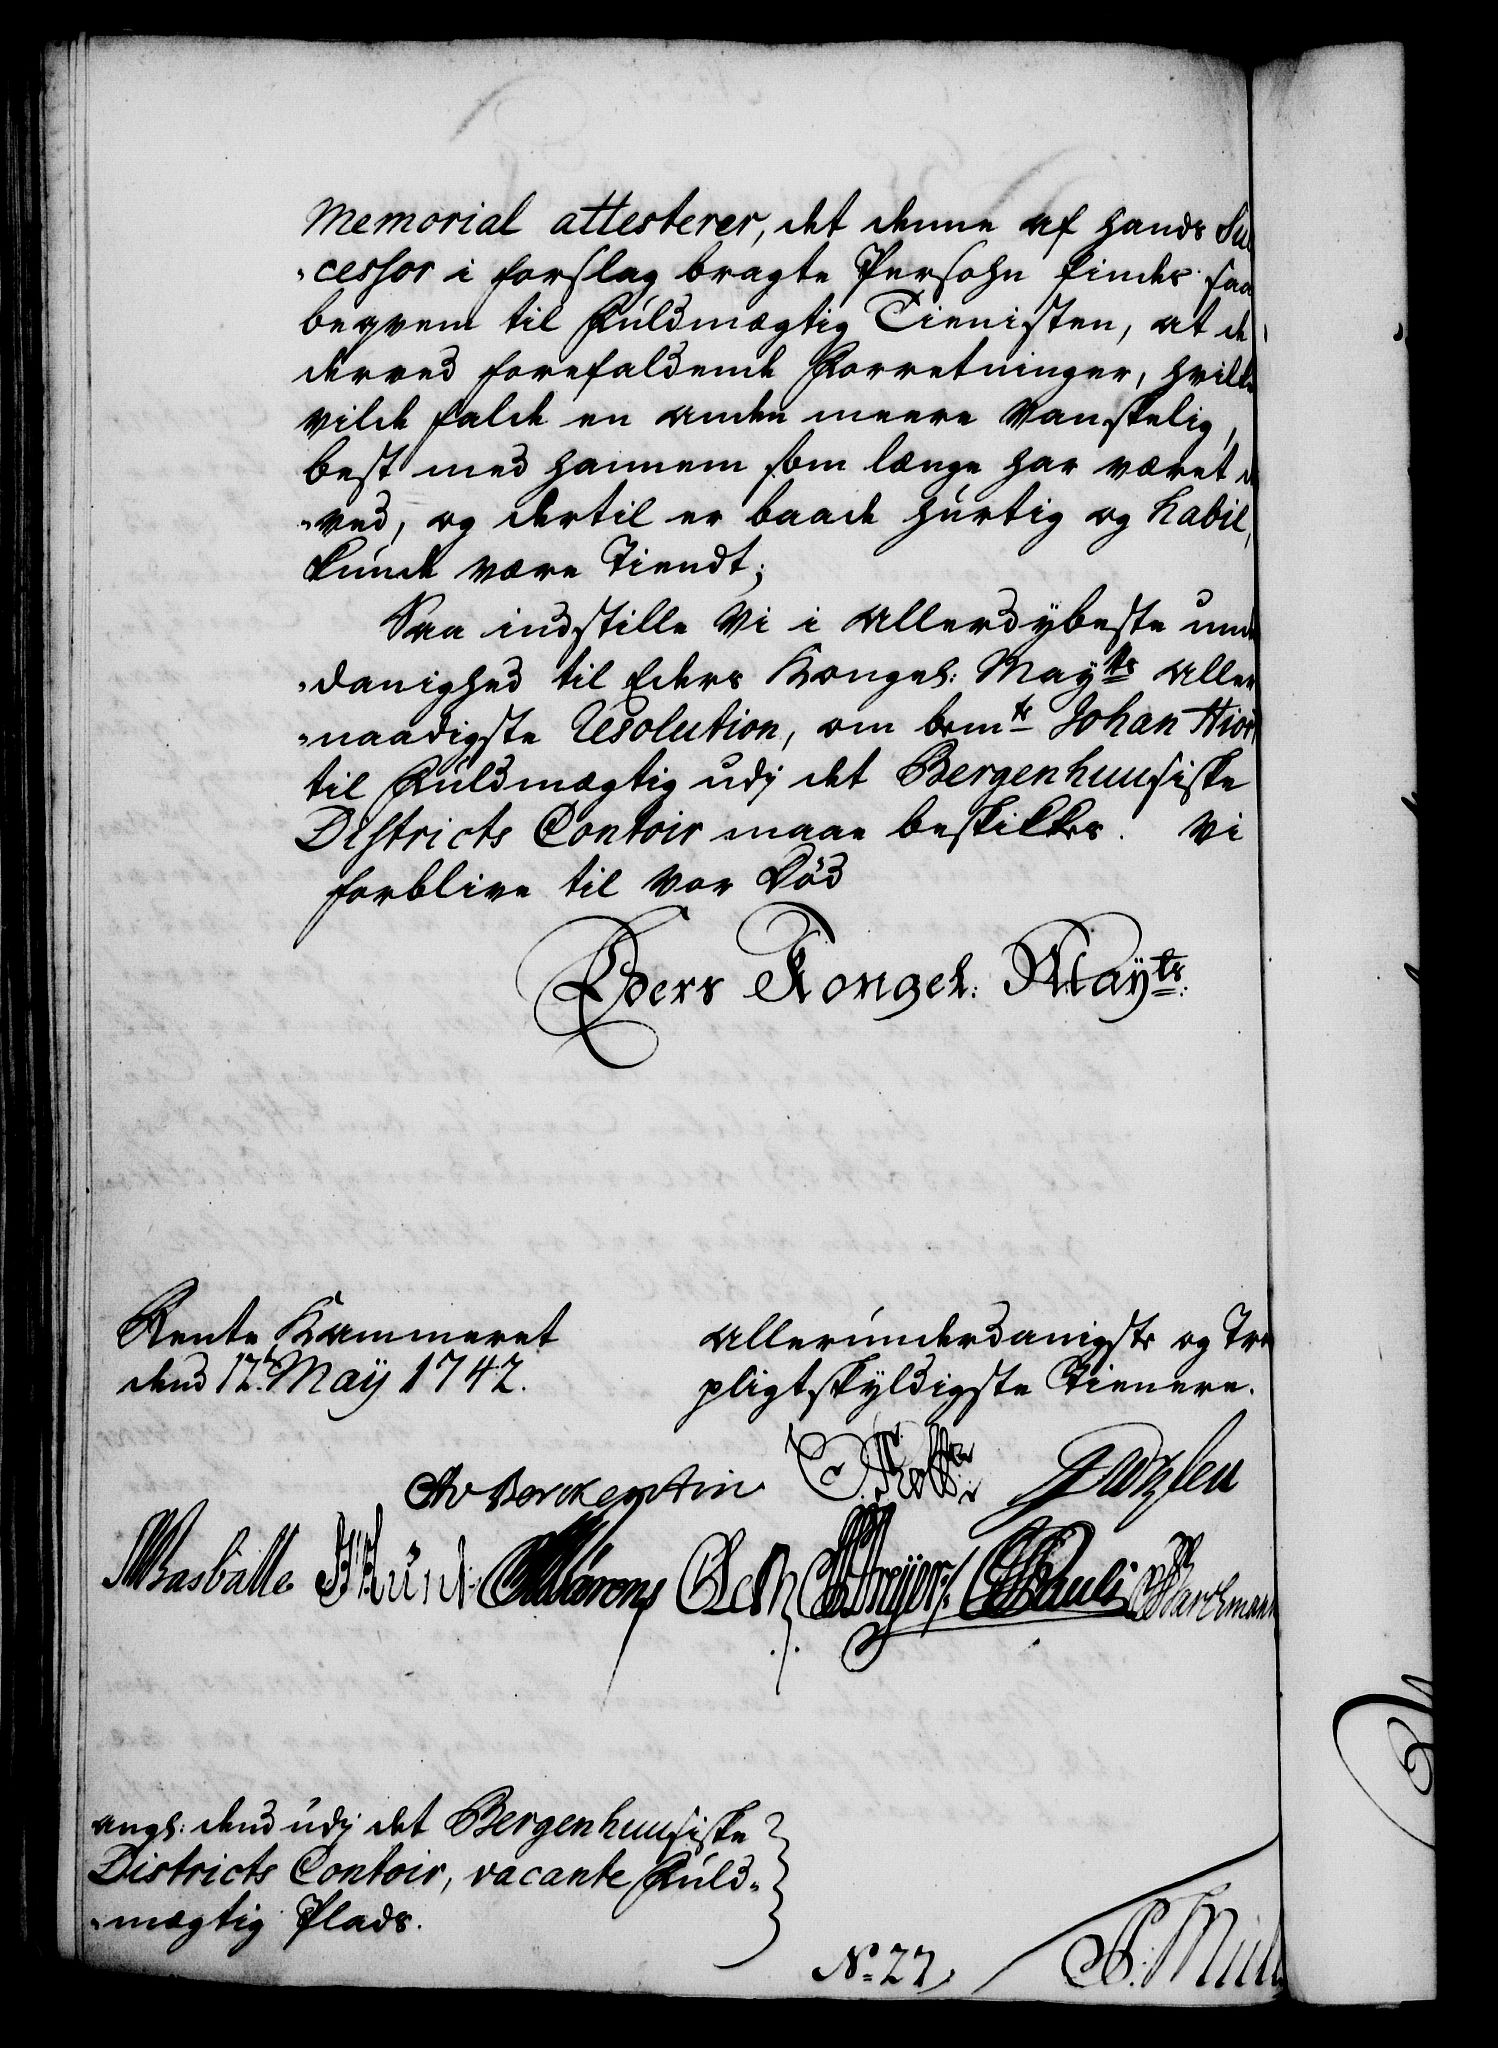 Memorial attesterer, det denne af hands Suc
-cessor i forslag bragte Persohn findes saa
beqvem til Fuldmægtig Tienisten, at de
derved forefaldende Forretninger, hvilke
vilde falde en anden meere vanskelig,
best med hannem som længe har været d
-ved, og dertil er baade hurtig og habil,
kunde være Tiendt;
Saa indstille vi i allerdybeste under
-danighed til Eders Kongel: Mayts aller
-naadigste Resolution, om bemte Johan Hior
til Fuldmægtig udj det Bergenhuusiske
Districts Contoir maae beskikkes. Vi
forblive til vor Död
Eders Kongel: Mayts:
Rente Kammeret
dend 12t May 1742.
allerunderdanigste og Tro
pligtskyldigste Tienere.
CAvBerckentin
Pauli
angl: dend udj det Bergenhuusiske
Districts Contoir, vacante Fuld-
-mægtig Plads.
No 22,